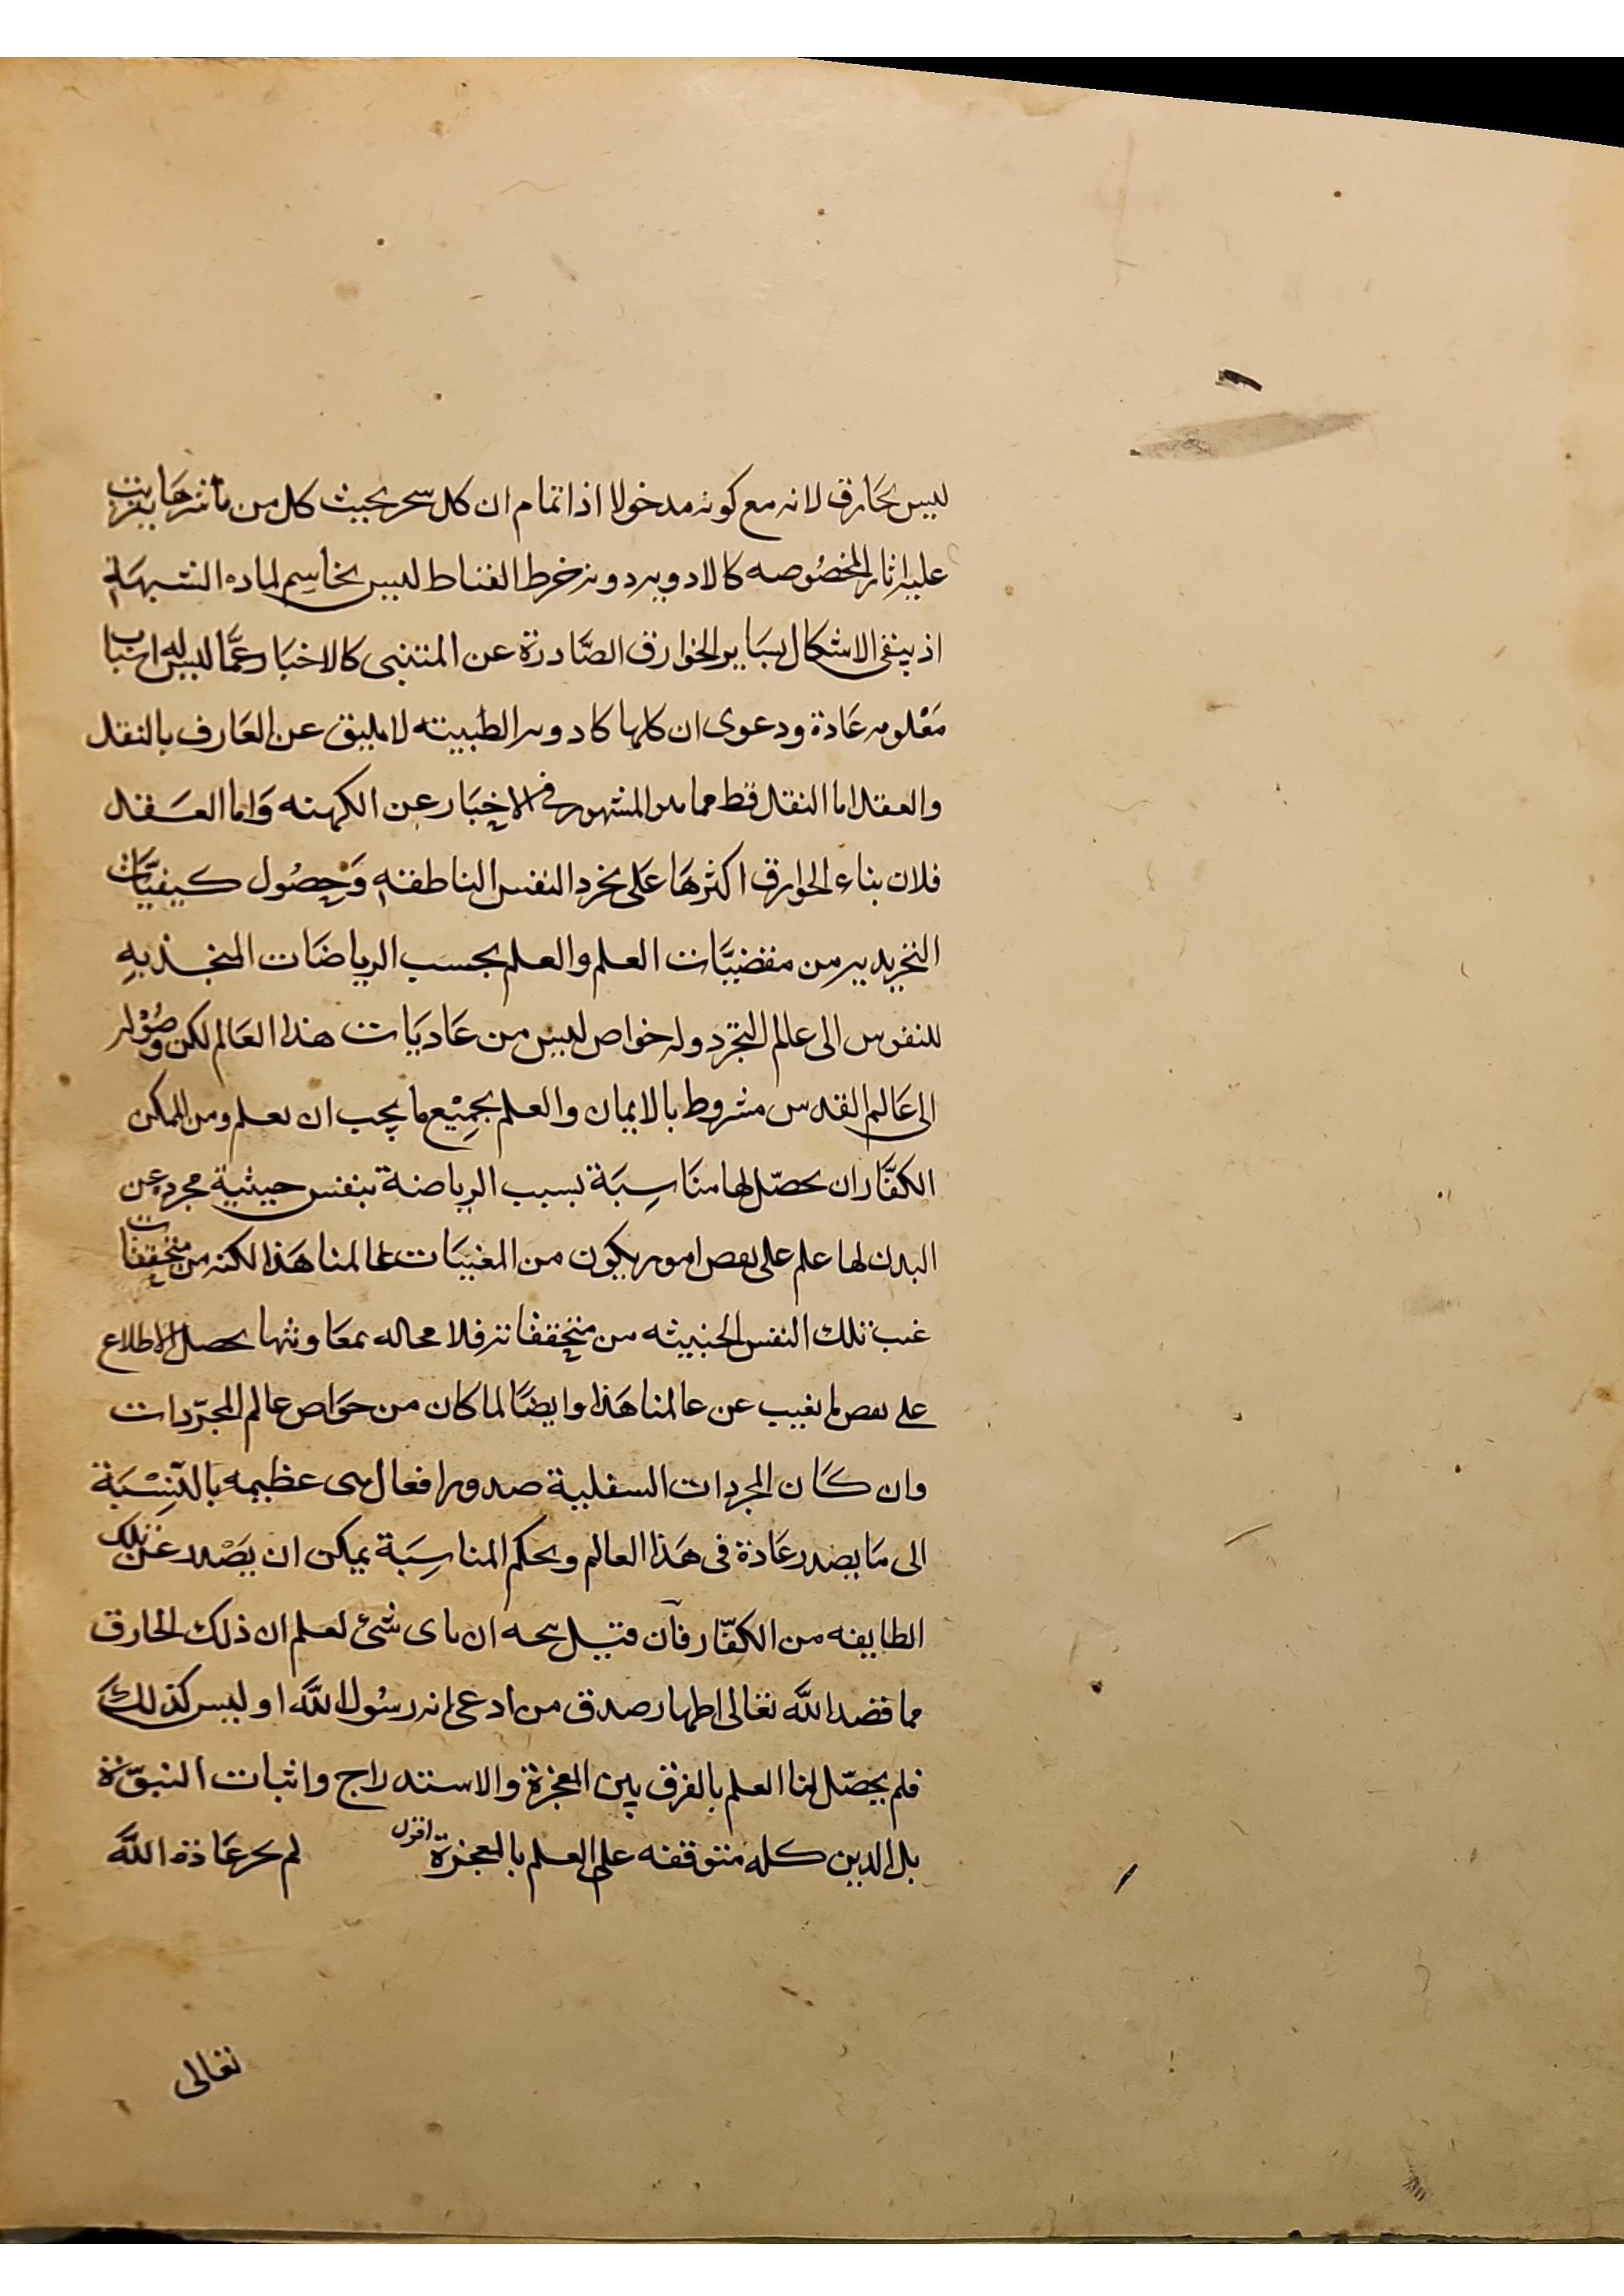 ليس بخارق لانه مع كونه مدخولا اذا تمام ان كل سحر بحيث كل من باشر
عليه اثار المخصوصه كالادويه دونه خرط القتاط ليس بخاسم لماده الشبهة
اذ يبقى الاشكال بساير الخوارق الصادرة عن المتنبى كالاخبار عما ليس له اسباب
معلومه عادة ودعوى ان كلها كادويه الطبيته لا يليق عن العارف بالنقل
والعقل اما النقل فظ مما من المشهور فى الاخبار عن الكهنه واما العقل
فلان بناء الخوارق اكثرها على تجرد النفس الناطقة وحصول كيفيّات
التجريديه من مقتضيّات العلم والعلم بحسب الرياضات المنجذبه
للنفوس الى عالم التجرد وله خواص ليس من عاديات هذا العالم لكن وصوله
الى عالم القدس مشروط بالايمان والعلم بجميع ما يجب ان يعلم ومن الممكن
الكفّار ان يحصّل لها مناسبة بسبب الرياضة بنفس حيثية مجرده عن
البدن لها علم على بعض امور يكون من المغيبات عالمنا هذا لكنه من متخففات
تلك النفس الخبيثه من متخففاته فلا محاله بمعاونتها يحصل الاطلاع
على بعض ما يغيب عن عالمنا هذا وايضًا لما كان من خواص عالم المجرّدات
وان كان المجردات السفلية صدور افعال هى عظيمه بالنّسبة
الى ما يصدر عادة فى هذا العالم وبحكم المناسبة يمكن ان يصدر عن تلك
الطايفه من الكفّار فان قيل ان باى شئ نعلم ان ذلك الخارق
مما قصد الله تعالى اظهار صدق من ادعى انه رسول الله او ليس كذلك
فلم يحصّل لنا العلم بالفرق بين المعجزة والاستدراج واثبات النبوّة
بل الدين كله متوقفه على العلم بالمعجزة اقول لم يجر عادة الله
تعالى